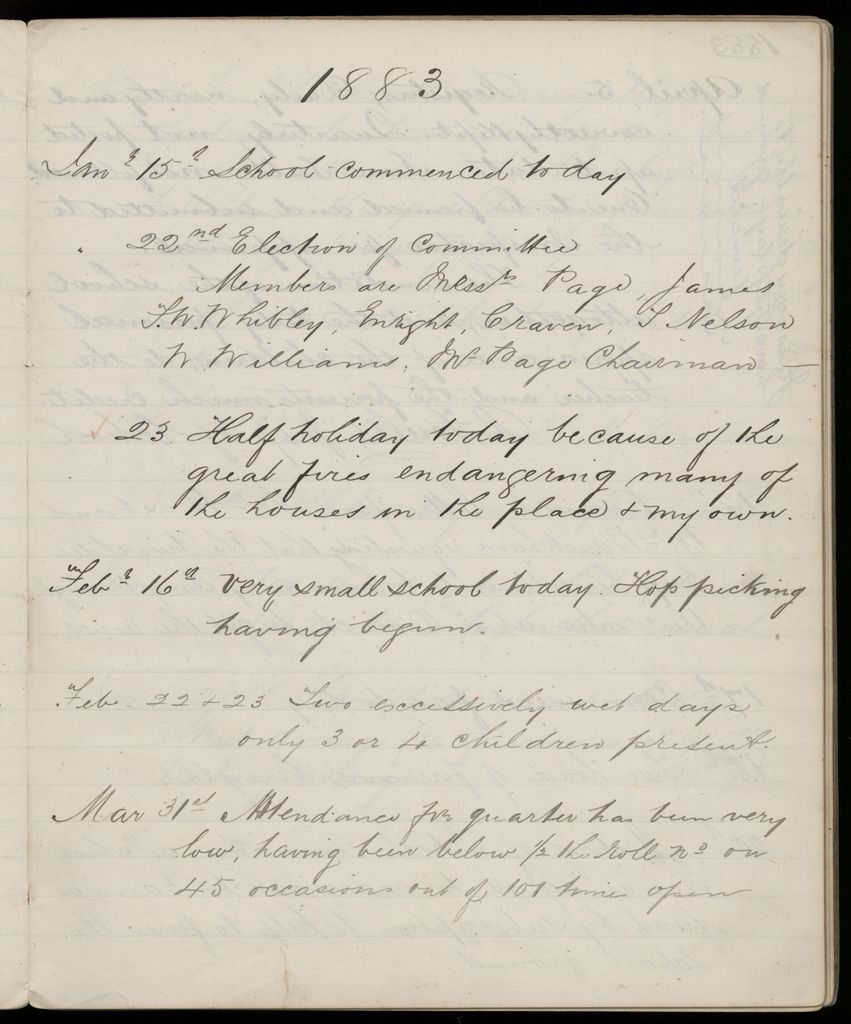 1883
Jany 15th School commenced today
" 22nd Election of Committee
Members are Messrs Page, James
T.W. Whibley, Enright, Craven, T Nelson
W Williams, Mr Page Chairman —
23 Half holiday today because of the
great fires endangering many of
the houses in the place & my own.
Feby 16th very small school today. Hop picking
having begun.
Feb. 22 & 23 Two excessively wet days
only 3 or 4 children present.
Mar 31st Attendance for quarter has been very
low, having been below 1/2 the roll no on
45 occasions out of 101 times open